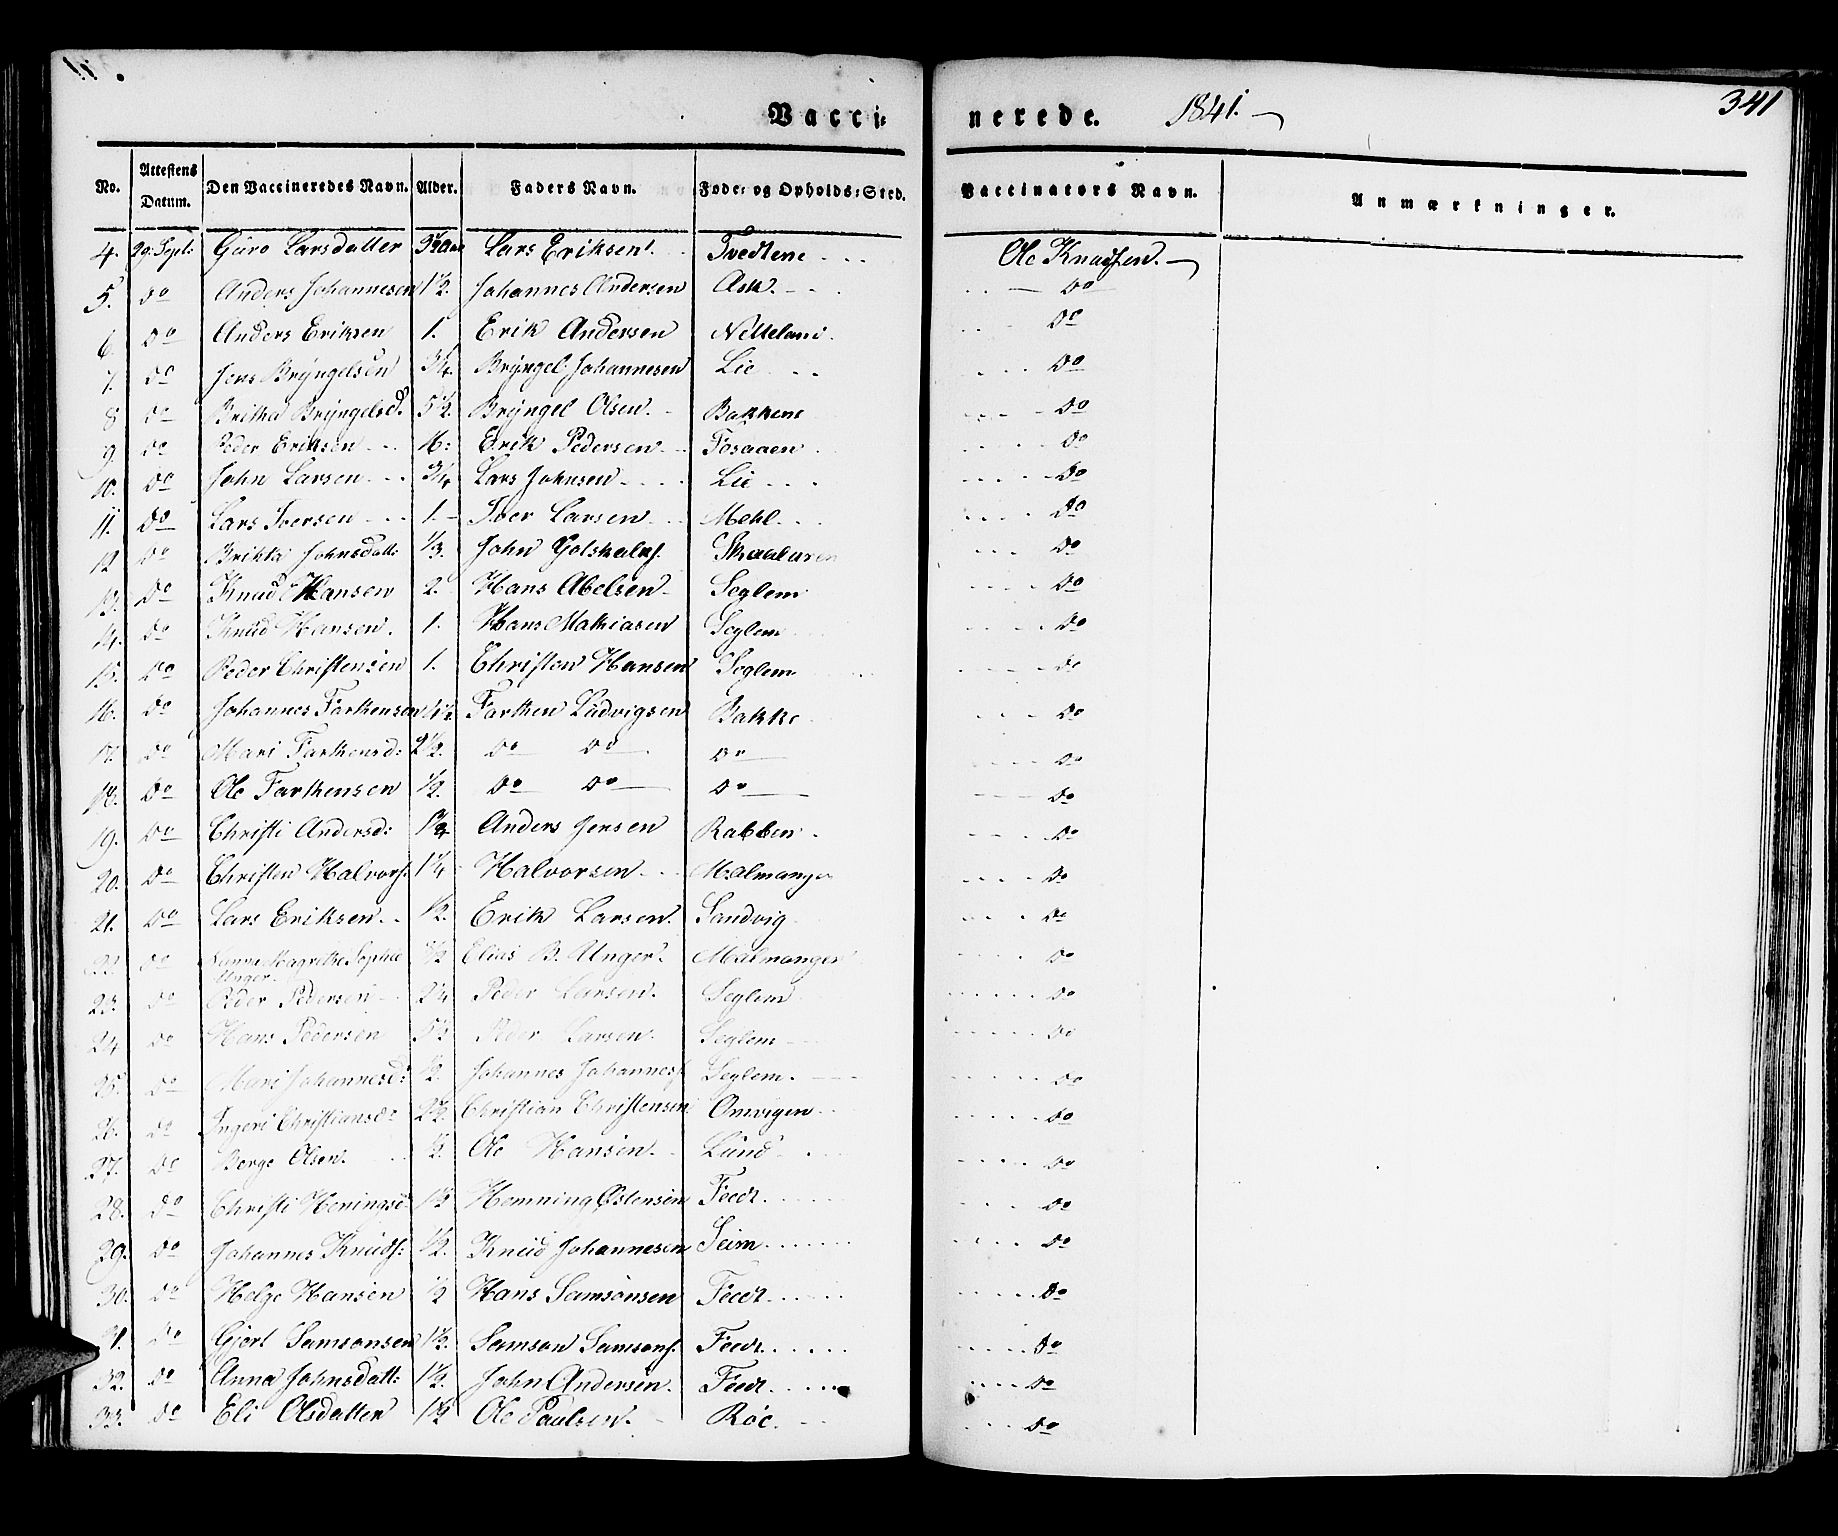 Vacci: nerede. 1841. 341
No. Attestens Datum. Den Vaccineredes Navn. Alder. Faders Navn. Føde: og Opholds:Sted. Vaccinators Navn. Anmærkninger.
4. 29. Sept: Guro Larsdatter 3½ Aar Lars Eriksen. Tvedtene Ole Knudsen.
5. do Anders Johannesen 1½. Johannes Andersen Ask. do
6. do Anders Eriksen 1. Erik Andersen Netteland. do
7. do Jens Brÿngelsen ¾. Brÿngel Johannesen Lie do
8 do Britha Brÿngelsd. 5½. Brÿngel Olsen. Bakkene do
9. do Peder Eriksen Erik Pedersen Fosaaen do
10. do John Larsen ¾ Lars Johnsen Lie do
11. do Lars Iversen 1. Iver Larsen Mehl. do
12 do Britha Johnsdatt: ⅓. John Golskalks. Skaaluren do
13. do Knud Hansen 2. Hans Abelsen Seglem do
14. do Knud Hansen. 1. Hans Mathiasen Seglem do
15. do Peder Christensen 1. Christen Hansen Seglem do
16. do Johannes Farthensen 4½. Farthen Ludvigsen Bakke do
17. do Mari Farthensd: 2½. do do do do
18. do Ole Farthensen ½. do do do do
19. do Christi Andersd: Anders Jensen Rabben do
20. do Christen Halvors. 1¼ Halvorsen Malmanger do
21. do Lars Eriksen ½. Erik Larsen. Sandvig do
22. do Magrethe Sophie Unger ½ Elias B. Unger Malmanger do
23. do Peder Pedersen 2¼ Peder Larsen. Seglem do
24 do Hans Pedersen 5½ Peder Larsen. Seglem do
25. do Mari Johannesd: ½. Johannes Johanness. Seglem. do
26. do Ingeri Christiansd: 2½. Christian Christensen Omvigen do
27. do Berge Olsen. ½. Ole Hansen. Lund do
28. do Christi Heningsd: 1½ Hemning Østensen Feedt. do
29. do Johannes Knuds: ½. Knud Johannesen Seim do
30. do Helge Hansen ½ Hans Samsonsen Feedt do
31. do Gjert Samsonsen 1½. Samson Samsons. Feedt do
32. do Anna Johnsdatt: 1½. John Andersen. Feedt do
33. do Eli Olsdatter 1½ Ole Paulsen. Røe. do